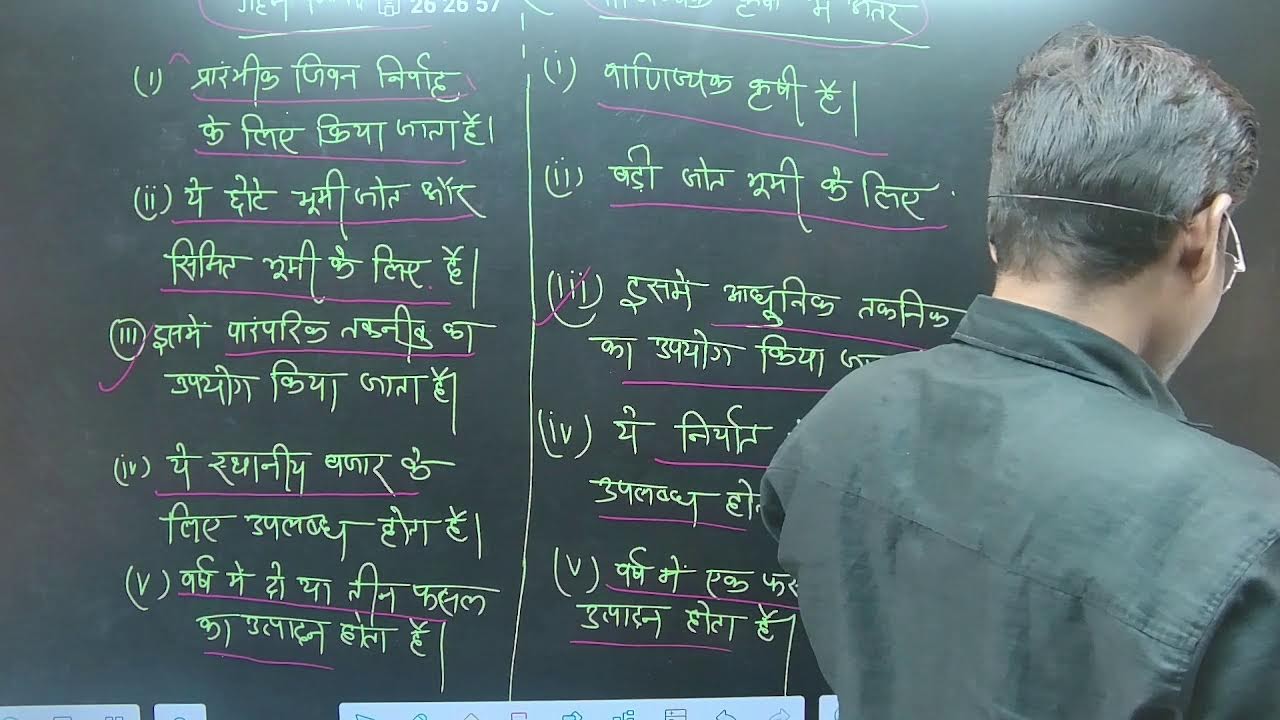 26 26 57
में अंतर
(i) प्रारंभीक जिवन निर्वाह
के लिए किया जाता है।
(ii) ये छोटे भूमी जोत और
सिमित भूमी के लिए है।
(iii) इसमे पारंपरिक तकनीक का
उपयोग किया जाता है।
(iv) ये स्थानीय बजार के
लिए उपलब्ध होता है।
(v) वर्ष मे दो या तीन फसल
का उत्पादन होता है।
(i) वाणिज्यक कृषी है।
(ii) बड़ी जोत भूमी के लिए
(iii) इसमे आधुनिक तकनिक
का उपयोग किया
(iv) ये निर्यात
उपलब्ध
(v) वर्ष में एक
उत्पादन होता है।